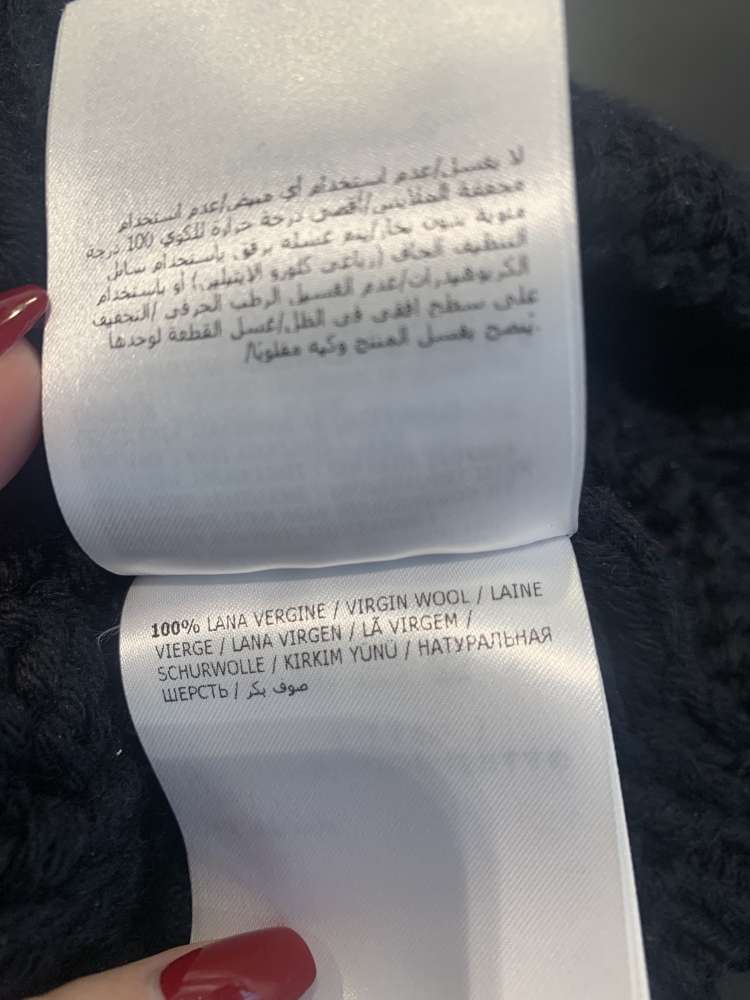 لا يغسل/عدم استخدام أي مبيض/عدم استخدام
مجففة الملابس/أقصى درجة حرارة للكوي 100 درجة
مئوية بدون بخار/يتم غسله برفق باستخدام سائل
التنظيف الجاف (رباعي كلورو الايثيلين) أو باستخدام
الكربوهيدرات/عدم الغسيل الرطب الحرفي /التجفيف
على سطح افقي في الظل/غسل القطعة لوحدها
/يُنصح بغسل المنتج وكيه مقلوبًا.
100% LANA VERGINE / VIRGIN WOOL / LAINE
VIERGE / LANA VIRGEN / LÃ VIRGEM /
SCHURWOLLE / KIRKIM YÜNÜ / НАТУРАЛЬНАЯ
ШЕРСТЬ / صوف بكر